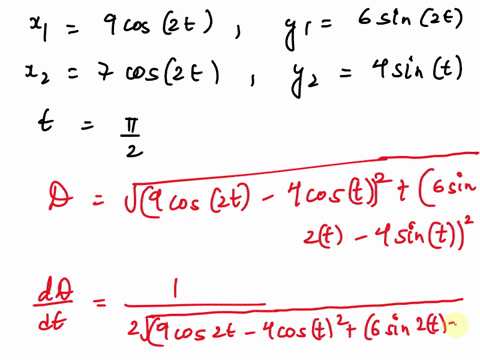 x₁ = 9cos(2t), y₁ = 6sin(2t)
x₂ = 7cos(2t), y₂ = 4sin(t)
t = π/2
D = √(9cos(2t) - 4cos(t))² + (6sin
2(t) - 4sin(t))²
dD/dt = 1/2√(9cos2t - 4cos(t)² + (6sin2(t) -